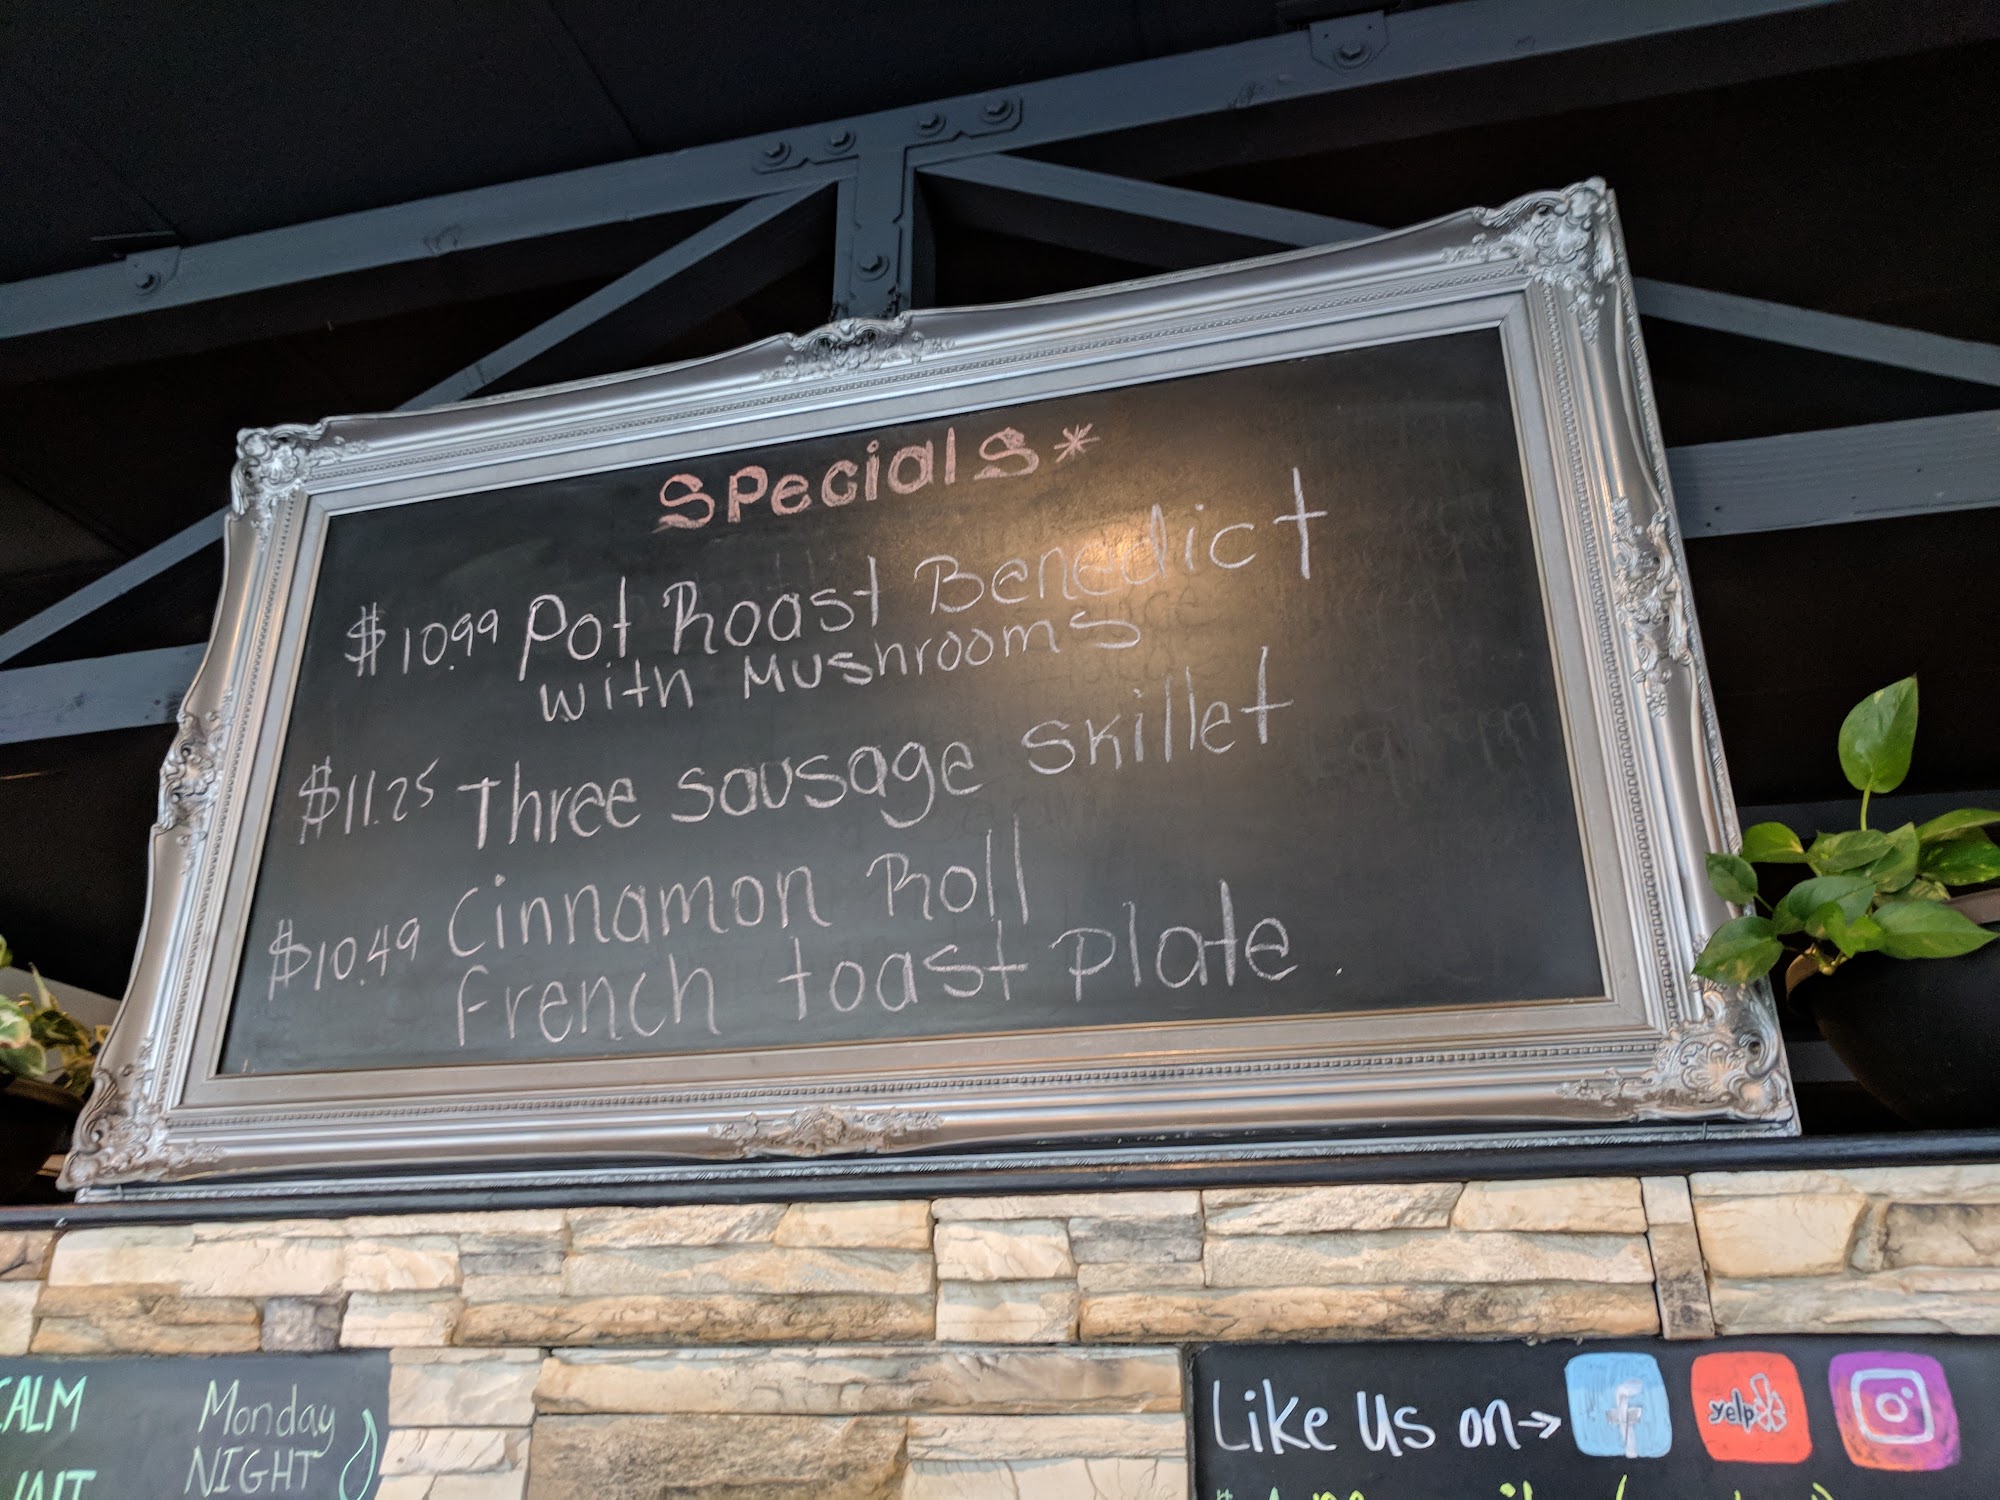 Specials*
$10.99 Pot Roast Benedict
with Mushrooms
$11.25 Three Sausage Skillet
$10.49 Cinnamon Roll
French toast plate.
CALM
Monday
NIGHT
Like Us on→
f
yelp